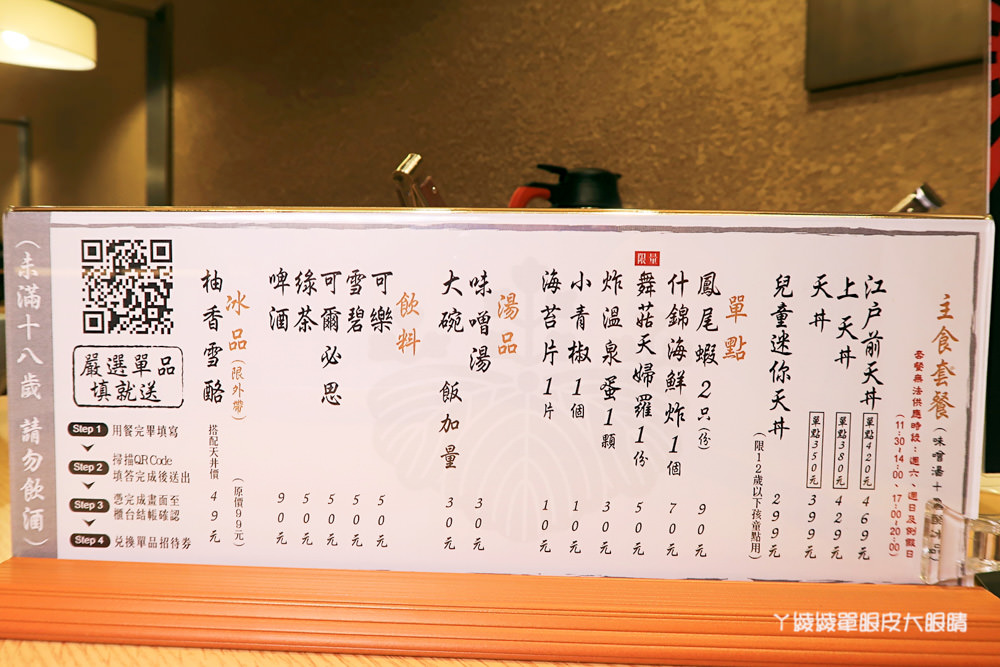 主食套餐(味噌湯+
套餐無法供應時段:週六、週日及例假日
(11:30~14:00、17:00~20:00)
江戶前天丼 單點420元 469元
上天丼 單點380元 429元
天丼 單點350元 399元
兒童迷你天丼 299元
(限12歲以下孩童點用)
單點
鳳尾蝦2只(份) 90元
什錦海鮮炸1個 70元
限量
舞菇天婦羅1份 50元
炸溫泉蛋1顆 30元
小青椒1個 10元
海苔片1片 10元
湯品
味噌湯 30元
大碗 飯加量 30元
飲料
可樂 50元
雪碧 50元
可爾必思 50元
綠茶 50元
啤酒 90元
冰品(限外帶) (原價99元)
柚香雪酪 搭配天丼價49元
嚴選單品
填就送
Step 1 用餐完畢填寫
Step 2 掃描QR Code
填答完成後送出
Step 3 憑完成畫面至
櫃台結帳確認
Step 4 兌換單品招待券
(未滿十八歲 請勿飲酒)
ㄚ綾綾單眼皮大眼睛